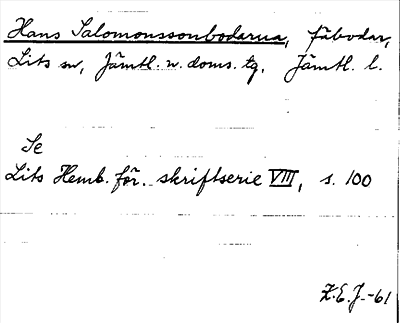 Hans Salomonssonbodarna, fäbodar,
Lits sn, Jämtl. n. doms. tg, Jämtl. l.
Se
Lits Hemb. för. skriftserie VIII, s. 100
Z.E.J.-61